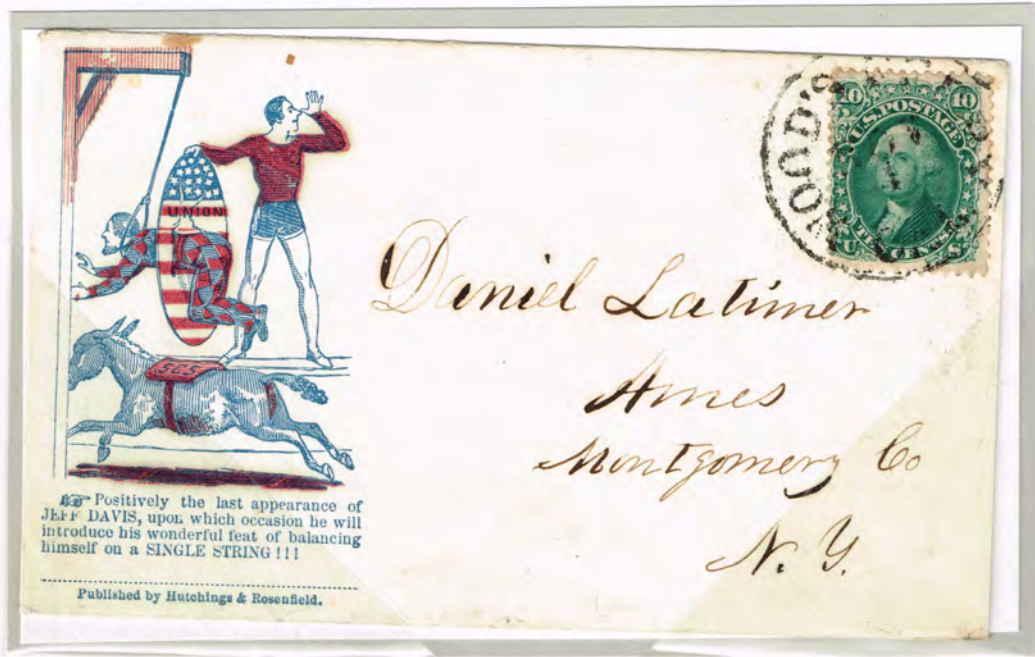 UNION
SCS
☞ Positively the last appearance of
JEFF DAVIS, upon which occasion he will
introduce his wonderful feat of balancing
himself on a SINGLE STRING ! ! !
Published by Hutchings & Rosenfield.
WOOD'S
10 10
U.S. POSTAGE
TEN CENTS
U. S.
Daniel Latimer
Ames
Montgomery Co
N. Y.